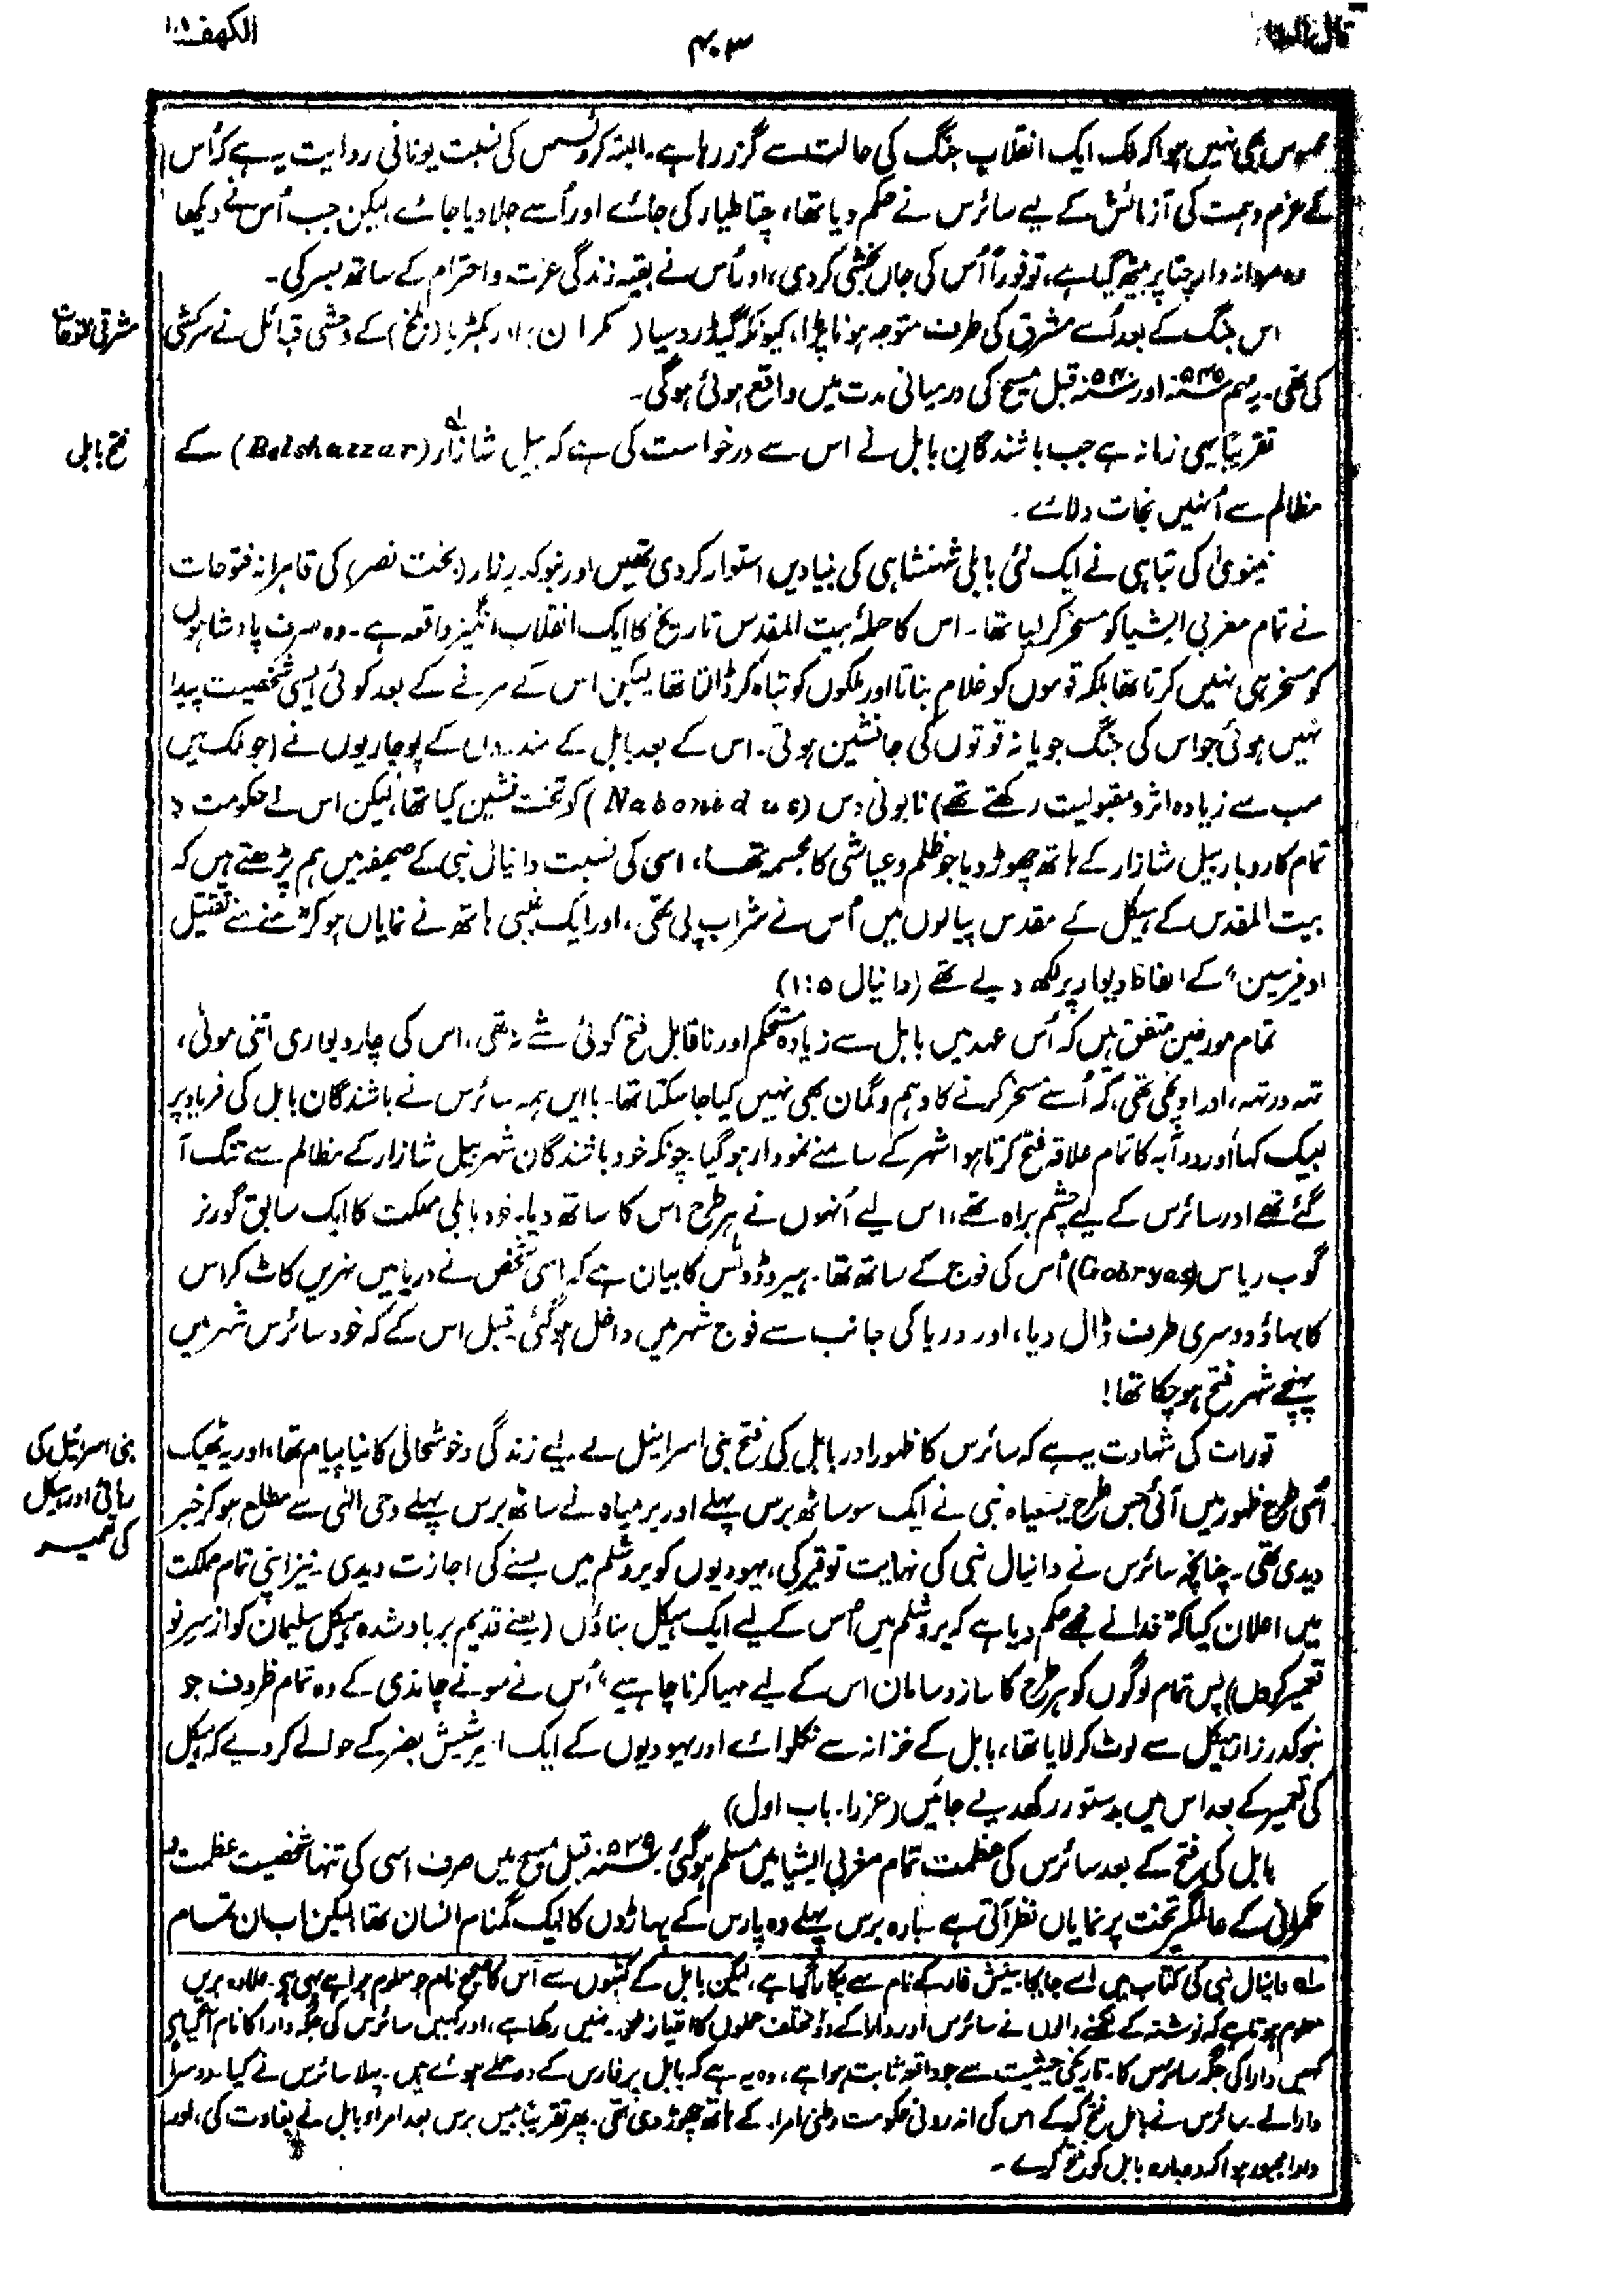 الکہف ۱۸
۴۰۳
محسوس بھی نہیں ہوا کہ ملک ایک انقلاب جنگ کی حالت سے گزر رہا ہے۔ البتہ کروئسس کی نسبت یونانی روایت یہ ہے کہ اُس
کے عزم و ہمت کی آزمائش کے لیے سائرس نے حکم دیا تھا، چتا طیار کی جائے اور اُسے جلا دیا جائے لیکن جب اُس نے دیکھا
وہ مردانہ وار چتا پر بیٹھ گیا ہے، تو فوراً اُس کی جاں بخشی کردی، اور اُس نے بقیہ زندگی عزت و احترام کے ساتھ بسر کی۔
مشرقی فتوحات
اس جنگ کے بعد اُسے مشرق کی طرف متوجہ ہونا پڑا، کیونکہ گیڈروسیا (مکران) اور بکٹریا (بلخ) کے وحشی قبائل نے سرکشی
کی تھی۔ یہ مہم ۵۴۵ اور ۵۴۰ قبل مسیح کی درمیانی مدت میں واقع ہوئی ہوگی۔
فتح بابل
تقریباً یہی زمانہ ہے جب باشندگانِ بابل نے اس سے درخواست کی ہے کہ بیل شازار (Belshazzar) کے
مظالم سے اُنہیں نجات دلائے۔
نینوی کی تباہی نے ایک نئی بابلی شہنشاہی کی بنیادیں استوار کردی تھیں اور نبوکدرزار (بخت نصر) کی قاہرانہ فتوحات
نے تمام مغربی ایشیا کو مسخر کر لیا تھا۔ اس کا حملۂ بیت المقدس تاریخ کا ایک انقلاب انگیز واقعہ ہے۔ وہ صرف پادشاہوں
کو مسخر ہی نہیں کرتا تھا بلکہ قوموں کو غلام بناتا اور ملکوں کو تباہ کر ڈالتا تھا لیکن اس کے مرنے کے بعد کوئی ایسی شخصیت پیدا
نہیں ہوئی جو اس کی جنگ جویانہ قوتوں کی جانشین ہوتی۔ اس کے بعد بابل کے مندروں کے پوجاریوں نے (جو ملک میں
سب سے زیادہ اثر و مقبولیت رکھتے تھے) نابونی دس (Nabonidus) کو تخت نشین کیا تھا، لیکن اس نے حکومت کا
تمام کاروبار بیل شازار کے ہاتھ چھوڑ دیا جو ظلم و عیاشی کا مجسمہ تھا، اسی کی نسبت دانیال نبی کے صحیفہ میں ہم پڑھتے ہیں کہ
بیت المقدس کے ہیکل کے مقدس پیالوں میں اُس نے شراب پی تھی، اور ایک غیبی ہاتھ نے نمایاں ہو کر "منے منے تقتیل
اوفیرسین" کے الفاظ دیوار پر لکھ دیے تھے (دانیال ۱:۵)
تمام مورخین متفق ہیں کہ اُس عہد میں بابل سے زیادہ مستحکم اور ناقابل فتح کوئی شے نہ تھی، اس کی چار دیواری اتنی موٹی،
تہ در تہ، اور اونچی تھی، کہ اُسے مسخر کرنے کا وہم و گمان بھی نہیں کیا جا سکتا تھا۔ باایں ہمہ سائرس نے باشندگان بابل کی فریاد پر
لبیک کہا اور دوآبہ کا تمام علاقہ فتح کرتا ہوا شہر کے سامنے نمودار ہوگیا۔ چونکہ خود باشندگان شہر بیل شازار کے مظالم سے تنگ آ
گئے تھے اور سائرس کے لیے چشم براہ تھے، اس لیے اُنہوں نے ہر طرح اس کا ساتھ دیا۔ خود بابلی مملکت کا ایک سابق گورنر
گوب ریاس (Gobryas) اُس کی فوج کے ساتھ تھا۔ ہیروڈوٹس کا بیان ہے کہ اسی شخص نے دریا میں نہریں کاٹ کر اس
کا بہاؤ دوسری طرف ڈال دیا، اور دریا کی جانب سے فوج شہر میں داخل ہوگئی۔ قبل اس کے کہ خود سائرس شہر میں
پہنچے شہر فتح ہو چکا تھا!
بنی اسرائیل کی
رہائی اور ہیکل
کی تعمیر
تورات کی شہادت یہ ہے کہ سائرس کا ظہور اور بابل کی فتح بنی اسرائیل کے لیے زندگی و خوشحالی کا نیا پیام تھا، اور یہ ٹھیک
اُسی طرح ظہور میں آئی جس طرح یسعیاہ نبی نے ایک سو ساٹھ برس پہلے اور یرمیاہ نے ساٹھ برس پہلے وحی الٰہی سے مطلع ہو کر خبر
دیدی تھی۔ چنانچہ سائرس نے دانیال نبی کی نہایت توقیر کی، یہودیوں کو یروشلم میں بسنے کی اجازت دیدی۔ نیز اپنی تمام مملکت
میں اعلان کیا کہ "خدا نے مجھے حکم دیا ہے کہ یروشلم میں اُس کے لیے ایک ہیکل بناؤں (یعنے قدیم برباد شدہ ہیکل سلیمان کو از سر نو
تعمیر کروں) پس تمام لوگوں کو ہر طرح کا ساز و سامان اس کے لیے مہیا کرنا چاہیے" اُس نے سونے چاندی کے وہ تمام ظروف جو
نبوکدرزار ہیکل سے لوٹ کر لایا تھا، بابل کے خزانہ سے نکلوائے اور یہودیوں کے ایک امیر شیش بضر کے حوالے کر دیے کہ ہیکل
کی تعمیر کے بعد اس میں بدستور رکھدیے جائیں (عزرا۔ باب اول)
بابل کی فتح کے بعد سائرس کی عظمت تمام مغربی ایشیا میں مسلم ہوگئی۔ ۵۳۹ قبل مسیح میں صرف اسی کی تنہا شخصیت عظمت و
حکمرانی کے عالمگیر تخت پر نمایاں نظر آتی ہے بارہ برس پہلے وہ پارس کے پہاڑوں کا ایک گمنام انسان تھا لیکن اب ان تمام
لہ دانیال نبی کی کتاب میں اسے جابجا کے نام سے پکارا گیا ہے، لیکن بابل کے کتبوں سے اُس کا صحیح نام جو معلوم ہوا ہے یہی ہے۔ علاوہ بریں
معلوم ہوتا ہے کہ نوشتہ کے لکھنے والوں نے سائرس اور دارا کے دو مختلف حملوں کا امتیاز نہیں رکھا ہے، اور کہیں سائرس کی جگہ دارا کا نام آگیا ہے
کہیں دارا کی جگہ سائرس کا۔ تاریخی حیثیت سے جو واقعہ ثابت ہوا ہے، وہ یہ ہے کہ بابل پر فارس کے دو حملے ہوئے ہیں۔ پہلا سائرس نے کیا۔ دوسرا
دارا نے۔ سائرس نے بابل فتح کرکے اس کی اندرونی حکومت وطنی امراء کے ہاتھ چھوڑ دی تھی۔ پھر تقریباً بیس برس بعد امراء بابل نے بغاوت کی، اور
دارا مجبور ہوا کہ دوبارہ بابل کو فتح کرے۔